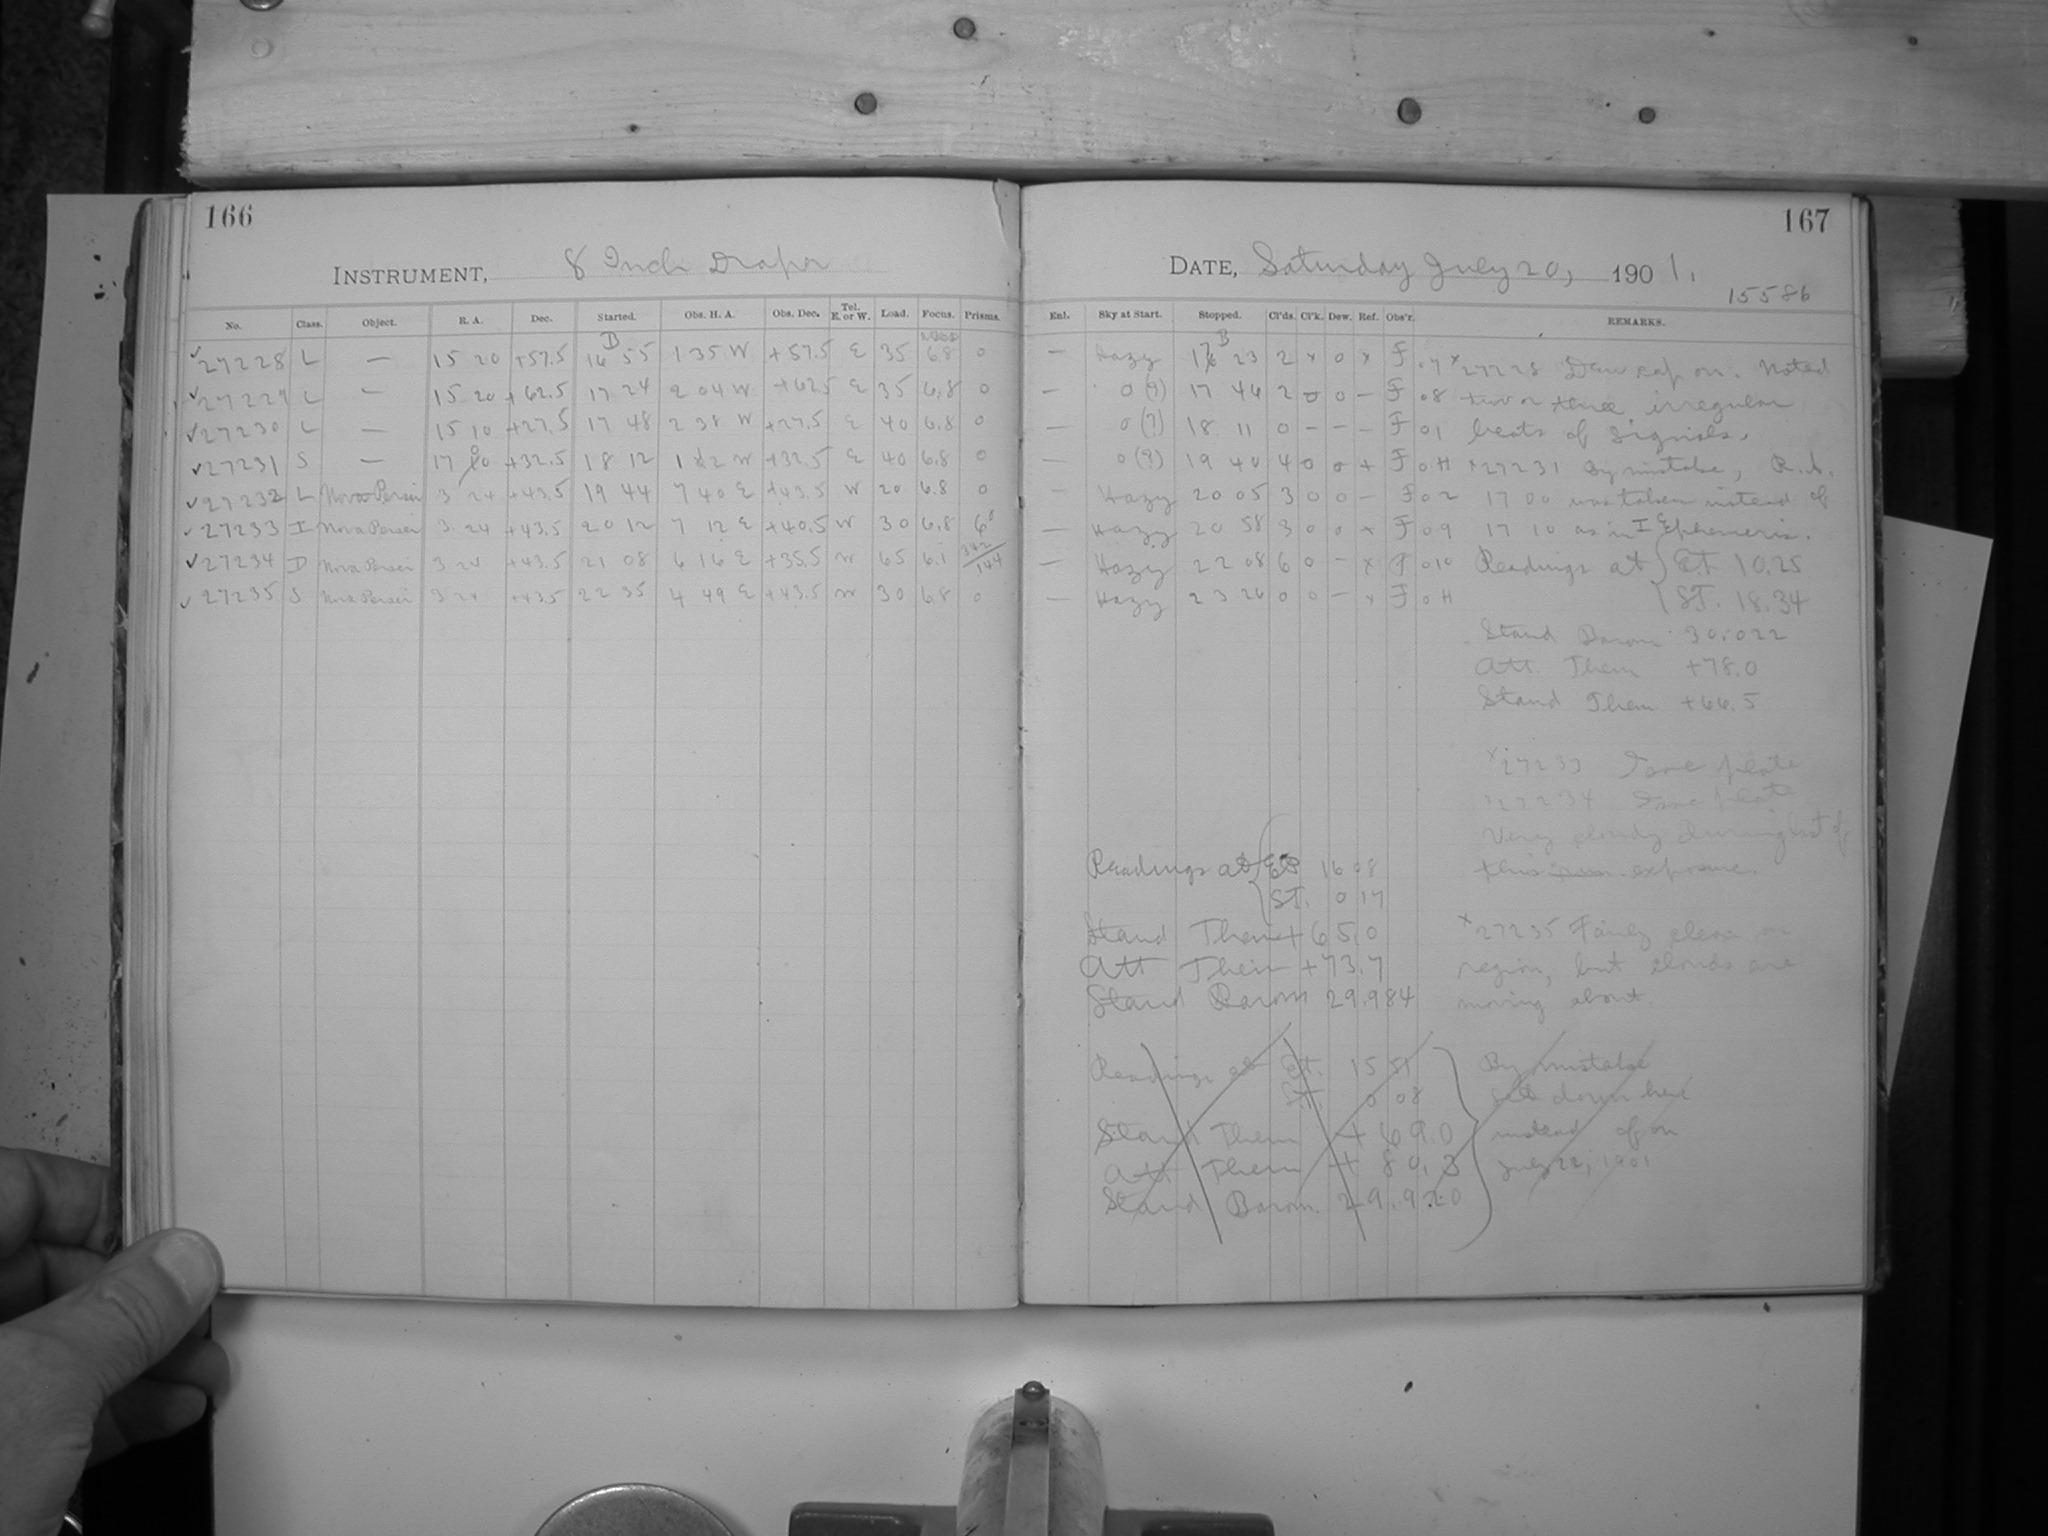 166
INSTRUMENT, 8 Inch Draper
No. Class. Object. R. A. Dec. Started. Obs. H. A. Obs. Dec. Tel. E. or W. Load. Focus. Prisms.
✓27228 L — 15 20 +57.5 16 55 1 35 W +57.5 E 35 6.8 0
✓27229 L — 15 20 +62.5 17 24 2 04 W +62.5 E 35 6.8 0
✓27230 L — 15 10 +27.5 17 48 2 38 W +27.5 E 40 6.8 0
✓27231 S — 17 00 +32.5 18 12 1 12 W +32.5 E 40 6.8 0
✓27232 L Nova Persei 3 24 +43.5 19 44 7 40 E +43.5 W 20 6.8 0
✓27233 I Nova Persei 3 24 +43.5 20 12 7 12 E +40.5 W 30 6.8 6°
✓27234 D Nova Persei 3 24 +43.5 21 08 6 16 E +35.5 W 65 6.1 342/144
✓27235 S Nova Persei 3 24 +43.5 22 35 4 49 E +43.5 W 30 6.8 0
167
DATE, Saturday July 20, 1901.
15586
Enl. Sky at Start. Stopped. Cl'ds. Cl'k. Dew. Ref. Obs'r. REMARKS.
— Hazy 17 23 2 x 0 x F .07 x27228 Dew cap on. Noted
— 0 (?) 17 46 2 0 0 — F 08 two or three irregular
— 0 (?) 18 11 0 — — — F 01 beats of signals.
— 0 (?) 19 40 4 0 0 x F 0H x27231 By mistake, R.A.
— Hazy 20 05 3 0 0 — F 02 17 00 was taken instead of
— Hazy 20 58 3 0 0 x F 09 17 10 as in I Ephemeris.
— Hazy 22 08 6 0 — x F 010 Readings at E.T. 10.25
— Hazy 23 26 0 0 — x F 0H S.T. 18.34
Stand Barom 30.022
Att. Therm +78.0
Stand Therm +66.5
x27233 Same plate
x27234 Same plate
Very cloudy during last of
this exposure.
Readings at E.T. 16 08
S.T. 0 17
Stand Therm + 65.0
Att Therm +73.7
Stand Barom 29.984
x27235 Fairly clear in
region, but clouds are
moving about.
Readings at E.T. 15 51
S.T. 0 08
Stand Therm + 69.0
Att Therm + 80.3
Stand Barom. 29.920
By mistake
set down here
instead of on
July 22, 1901